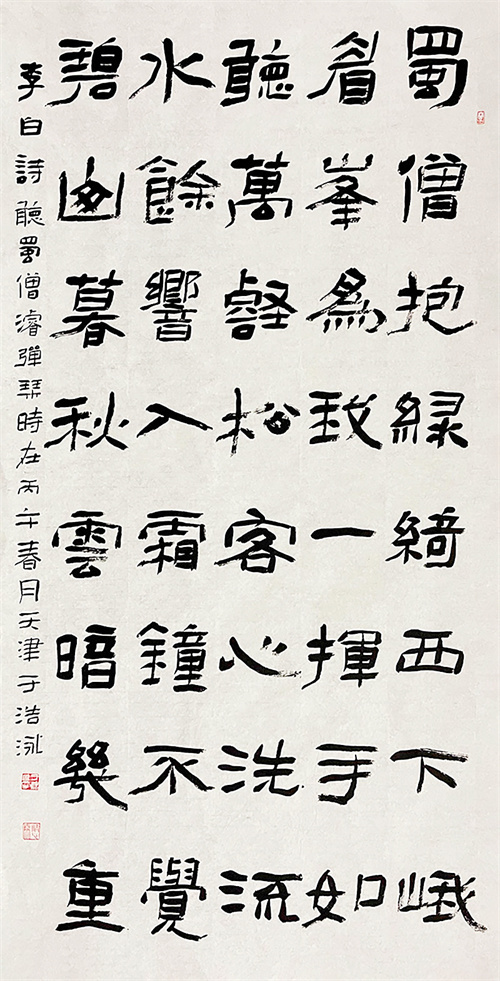 蜀僧抱緑綺西下峨
眉峯為我一揮手如
聽萬壑松客心洗流
水餘響入霜鐘不覺
碧山暮秋雲暗幾重
李白詩聽蜀僧濬彈琴時在丙午春月天津于浩泳